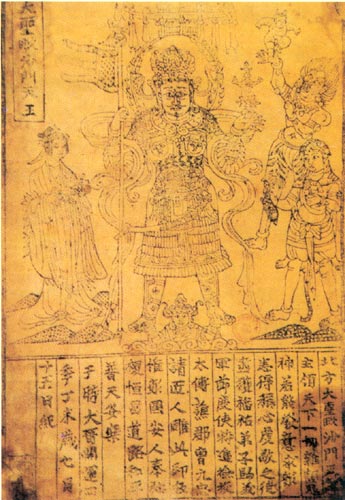 大聖毗沙門天王
北方大聖毗沙門天
主領天下一切雜類鬼
神若能發意求願
悉得稱心虔敬之徒
盡獲福祐弟子歸義
軍節度使特進檢校
太傅譙郡曹元忠
請匠人雕此印板
惟願國安人泰社
稷恒昌道路和平
普天安樂
于時大晉開運四
年丁未歲七月
十五日紀